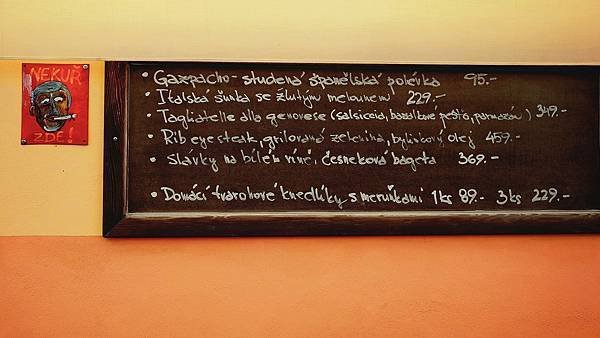 NEKUŘ
ZDE!
• Gazpacho - studená španělská polévka 95.-
• Italská šunka se žlutým melounem 229.-
• Tagliatelle alla genovese (salsiccia, bazalkové pesto, parmazán) 349.-
• Rib eye steak, grilovaná zelenina, bylinkový olej 459.-
• Slávky na bílém víně, česneková bageta 369.-
• Domácí tvarohové knedlíky s meruňkami 1 ks 89.- 3 ks 229.-